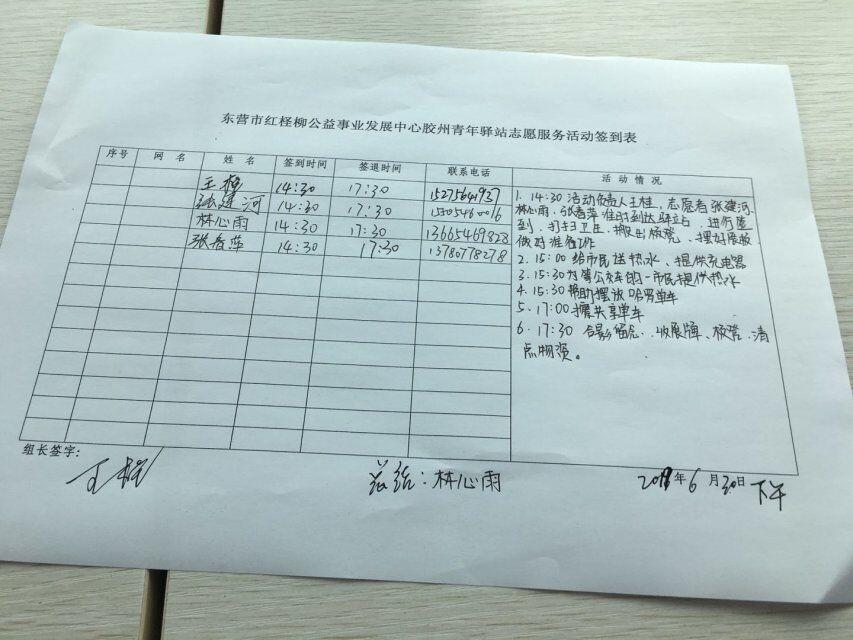 东营市红柽柳公益事业发展中心胶州青年驿站志愿服务活动签到表
序号 网 名 姓 名 签到时间 签退时间 联系电话 活 动 情 况
王柽 14:30 17:30
张建河 14:30 17:30
林心雨 14:30 17:30 13665469828
张春萍 14:30 17:30 13780778278
1. 14:30 活动负责人王柽,志愿者张建河.
林心雨、张春萍准时到达驿站,进行签
到,打扫卫生,搬出板凳,摆好展板
做好准备工作
2. 15:00 给市民送热水、提供充电器
3. 15:30 为等公交车的一市民提供热水
4. 15:30 帮助摆放哈罗单车
5. 17:00 摆共享单车
6. 17:30 合影留念、收展牌、板凳、清
点物资。
组长签字: 王柽
总结:林心雨
年6月30日 下午